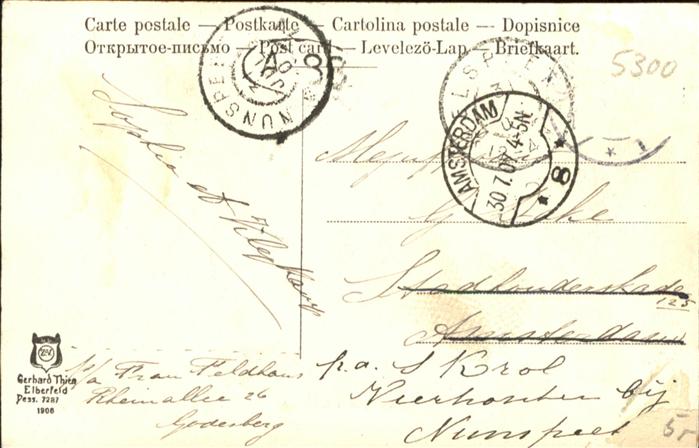 Carte postale — Postkarte — Cartolina postale — Dopisnice
Открытое-письмо — Post card — Levelező-Lap — Briefkaart.
5300
NUNSPEET
AMSTERDAM
30 7.0 4-5N
8
Stadhouderskade
125
Amsterdam
p.a. S Krol
Vierhouten bij
Nunspeet
p/a Frau Feldhaus
Rheinallee 26
Godesberg
Gerhard Thien
Elberfeld
Dess. 7287
1906
5-